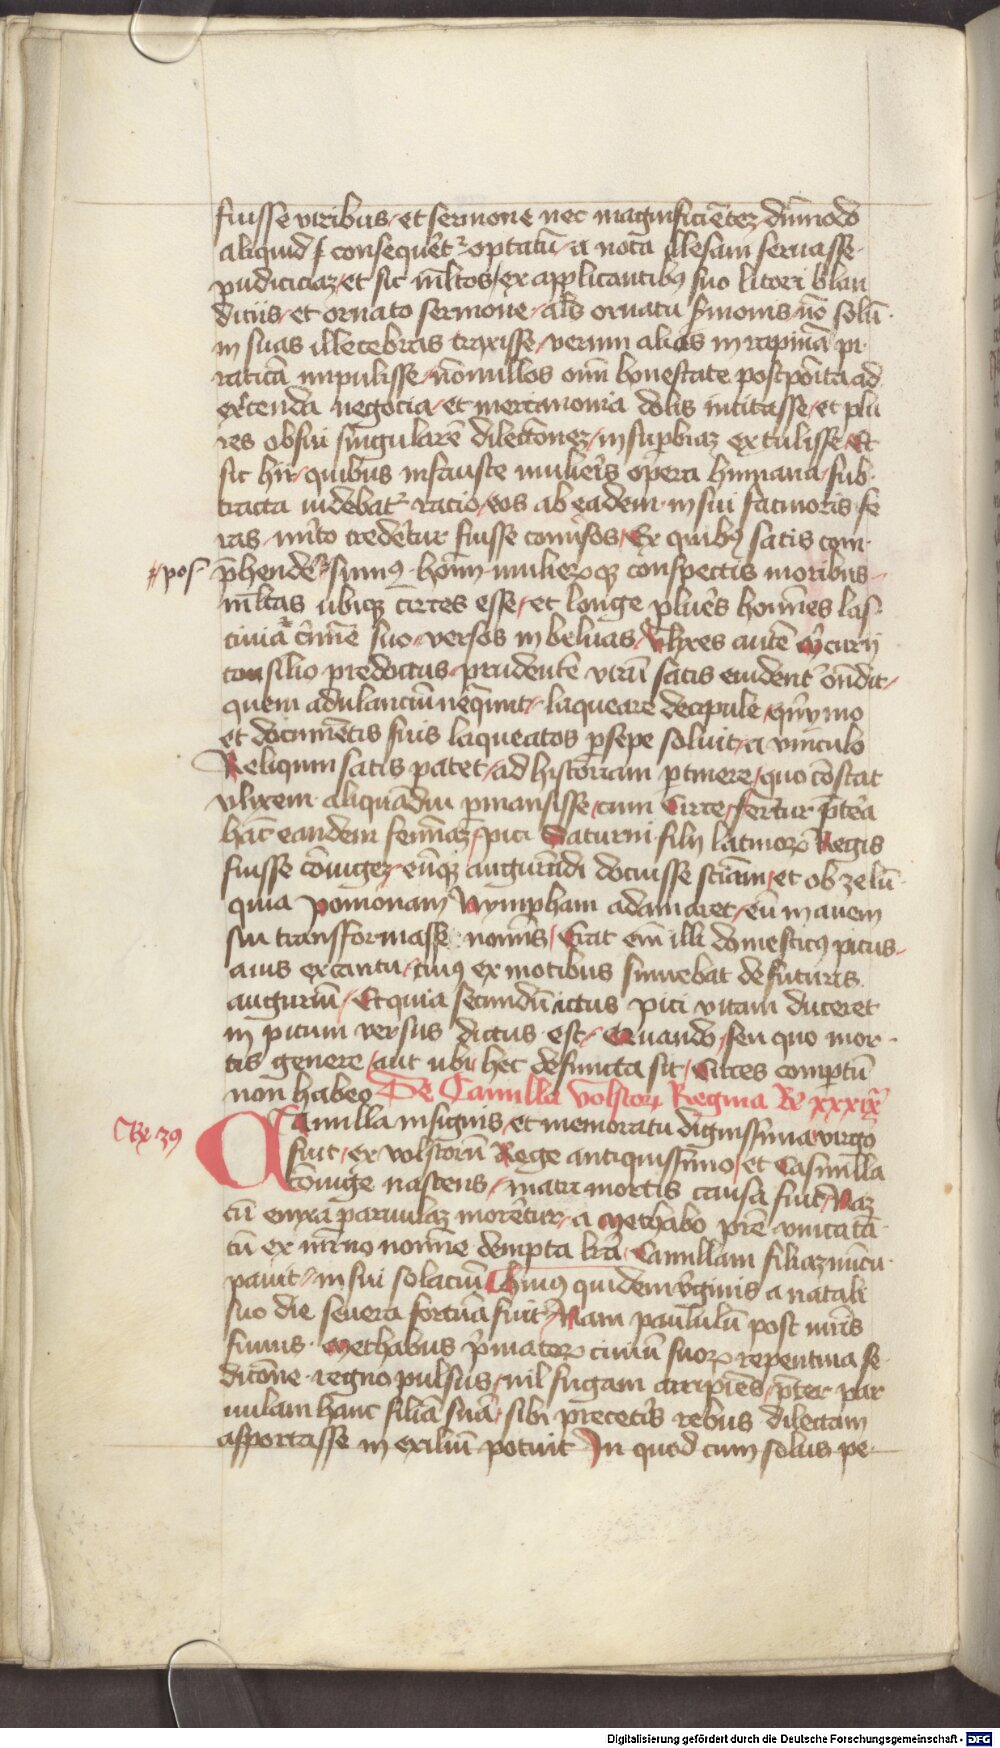 fuisse viribus et sermone nec magnificiētez dūmodo
aliquid consequēt optatū a nota illesam seruasse
pudiciciaz et sic mltos ex applicantibus suo litori blan
diciis et ornato sermone ornatu smonis nō solū
in suas illecebras traxisse verum alios in rapinā pi
raticā impulisse nōnullos om̄i honestate postpoīta ad
ex̄cenda negocia et mercimonia dolis incitasse et plu
res ob sui singularē dilectionez in supbiaz extulisse Et
sic hii quibus infauste mulieris opera humana sub
tracta videbat ratio eos ab eadem in sui facinoris fe
ras mito crederetur fuisse comsos Ex quibus satis com
phende sumus hoīm mulierumqz conspectis moribus
#pos
mltas ubiqz circes esse et longe plures homines las
ciuia cimine suo versos in beluas Vlixes autē mcurii
consilio predoctus prudentē virū satis euident ondit
quem adulanciū neqūnt laqueare decipule
et documētis suis laqueatos psepe soluit a vinculo
Reliqum satis patet ad historiam ptinere quo cōstat
vlixem aliquādiu pmansisse cum Circe fertur pterea
hāc eandem feminaz pici Saturni filii latinorum Regis
fuisse cōiugez eūqz augurādi docuisse sciam et ob zelū
quia pomonam Nympham adamaret eū in auem
sui transformasse nominis Erat em̄ illi domesticus picus
auis ex cantu cuius ex motibus sumebat de futuris
auguriū Et quia secundū actus pici vitam duceret
in picum versus dictus est Quando seu quo mor
tis genere aut ubi hec defuncta sit Circes comptū
non habeo De Camilla volscorum Regina Re xxxix
Re 39
Camilla insignis et memoratu dignissima virgo
fuit ex volscorū Rege antiquissimo et Casimilla
cōiuge nascens matri mortis causa fuit Naz
cū enixa paruulaz moretur a Methabo pre vnica tā
cū ex mrno nomine dempta lra Camillam filiaz nūcu
pauit in sui solaciū Huius quidem vginis a natali
suo die seuera fortuna fuit Nam paululū post mris
funus Methabus pmatorum ciuiū suorum repentina se
dicōne regno pulsus nil fugam arripiēs pter par
uulam hanc filiā suā sibi pre ceteris rebus dilectam
asportasse in exiliū potuit In quod cum solus pe